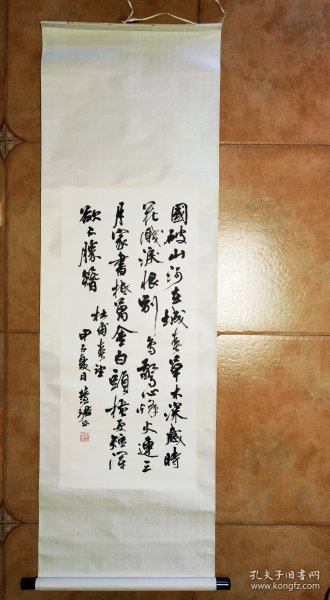 國破山河在城春草木深感時
花濺淚恨別鳥驚心烽火連三
月家書抵萬金白頭搔更短渾
欲不勝簪
杜甫春望
甲子夏日
孔夫子旧书网
www.kongfz.com